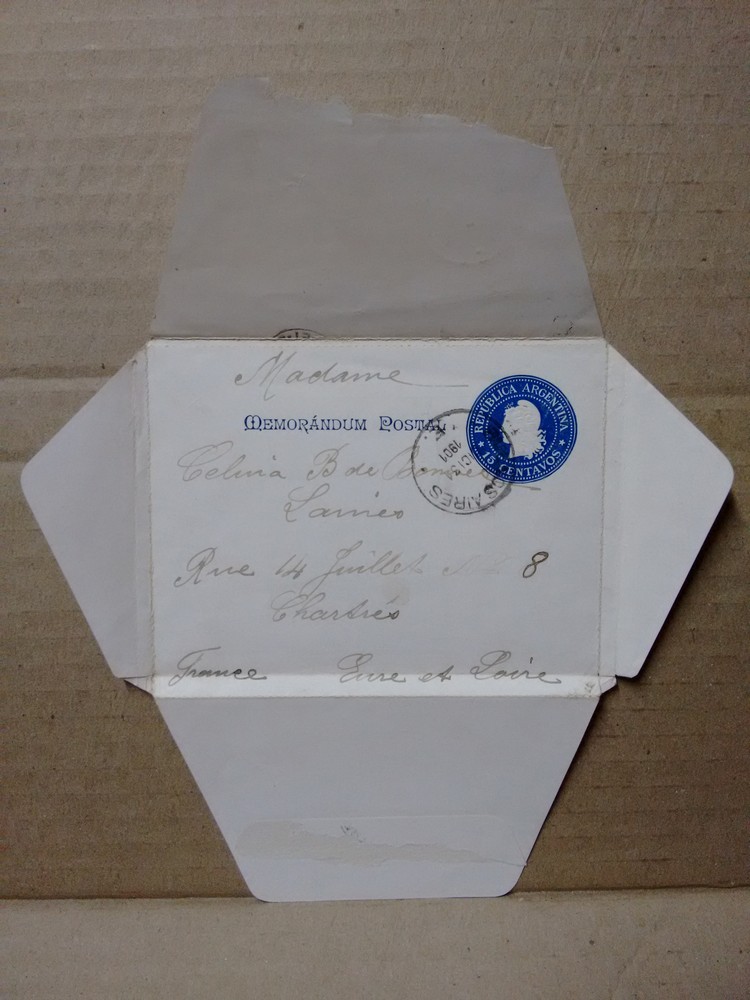 Madame
MEMORÁNDUM POSTAL
REPÚBLICA ARGENTINA
15 CENTAVOS
1901
OS AIRES
Celina B de
Lamies
Rue 14 Juillet No 8
Chartres
France Eure et Loire